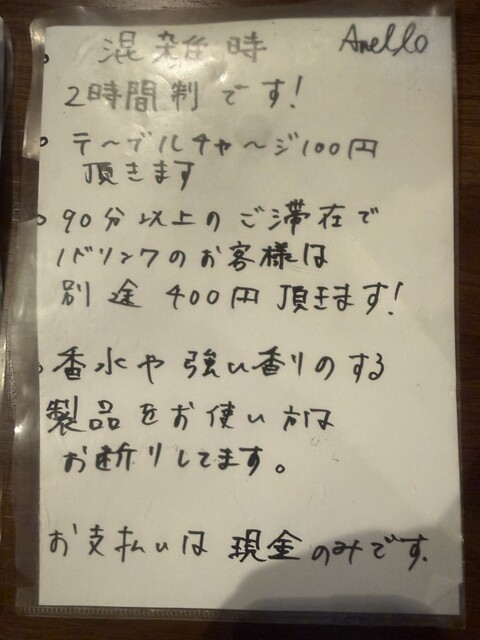 混雑時 Anello
2時間制です!
テーブルチャージ100円
頂きます
90分以上のご滞在で
1ドリンクのお客様は
別途400円頂きます!
香水や強い香りのする
製品をお使い方は
お断りしてます。
お支払いは現金のみです.